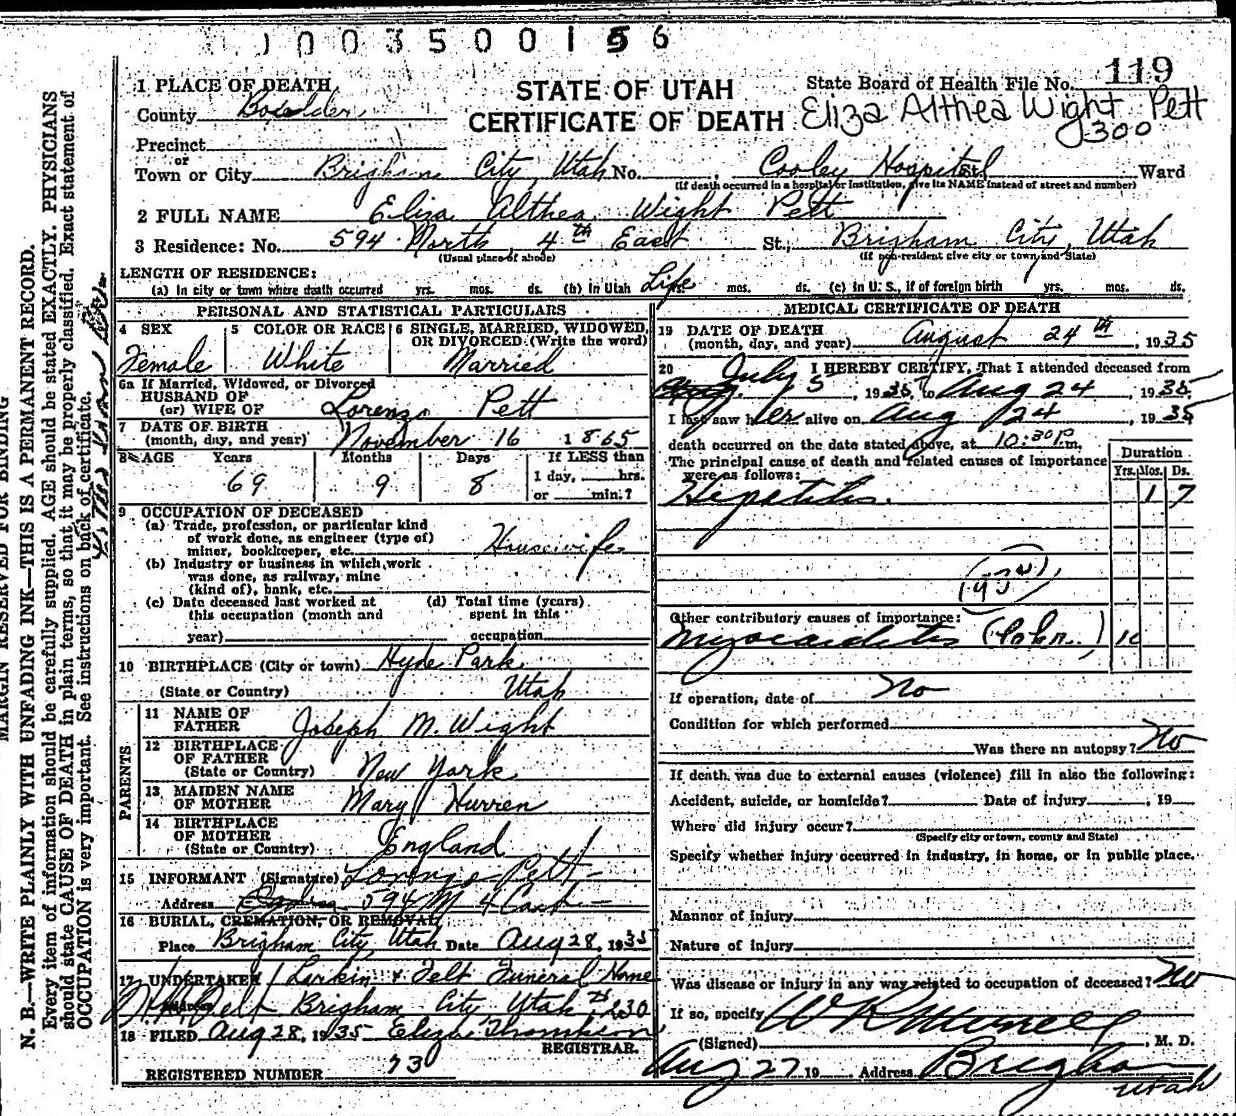 1003500156
1 PLACE OF DEATH
STATE OF UTAH
State Board of Health File No. 119
County Boxelder
CERTIFICATE OF DEATH
Eliza Althea Wight Pett
300
Precinct
or
Town or City Brigham City Utah No. Cooley Hospital St. Ward
(If death occurred in a hospital or institution, give its NAME instead of street and number)
2 FULL NAME Eliza Althea Wight Pett
3 Residence: No. 594 North 4th East St., Brigham City, Utah
(Usual place of abode) (If non-resident give city or town and State)
LENGTH OF RESIDENCE:
(a) In city or town where death occurred yrs. mos. ds. (b) in Utah Life yrs. mos. ds. (c) in U. S., if of foreign birth yrs. mos. ds.
PERSONAL AND STATISTICAL PARTICULARS
4 SEX Female
5 COLOR OR RACE White
6 SINGLE, MARRIED, WIDOWED, OR DIVORCED (Write the word) Married
6a If Married, Widowed, or Divorced
HUSBAND OF
(or) WIFE OF Lorenzo Pett
7 DATE OF BIRTH
(month, day, and year) November 16 1865
8 AGE Years 69 Months 9 Days 8 If LESS than
1 day, hrs.
or min.?
9 OCCUPATION OF DECEASED
(a) Trade, profession, or particular kind
of work done, as engineer (type of)
miner, bookkeeper, etc. Housewife
(b) Industry or business in which work
was done, as railway, mine
(kind of), bank, etc.
(c) Date deceased last worked at
this occupation (month and
year)
(d) Total time (years)
spent in this
occupation
10 BIRTHPLACE (City or town) Hyde Park
(State or Country) Utah
PARENTS
11 NAME OF
FATHER Joseph M. Wight
12 BIRTHPLACE
OF FATHER
(State or Country) New York
13 MAIDEN NAME
OF MOTHER Mary Hurren
14 BIRTHPLACE
OF MOTHER
(State or Country) England
15 INFORMANT (Signature) Lorenzo Pett
Address 594 N 4 East
16 BURIAL, CREMATION, OR REMOVAL
Place Brigham City, Utah Date Aug 28, 1935
17 UNDERTAKER Larkin & Felt Funeral Home
Brigham City Utah 230
18 FILED Aug 28, 1935 Eliza Thompson
REGISTRAR.
REGISTERED NUMBER 73
MEDICAL CERTIFICATE OF DEATH
19 DATE OF DEATH
(month, day, and year) August 24th, 1935
20 I HEREBY CERTIFY, That I attended deceased from
July 5, 1935, to Aug 24, 1935
I last saw her alive on Aug 24, 1935
death occurred on the date stated above, at 10:30 P.m.
The principal cause of death and related causes of importance
were as follows:
Duration
Yrs. Mos. Ds.
Hepatitis. 1 7
Other contributory causes of importance:
Myocarditis
If operation, date of No
Condition for which performed
Was there an autopsy? No
If death was due to external causes (violence) fill in also the following:
Accident, suicide, or homicide? Date of injury , 19
Where did injury occur?
(Specify city or town, county and State)
Specify whether injury occurred in industry, in home, or in public place.
Manner of injury
Nature of injury
Was disease or injury in any way related to occupation of deceased? No
If so, specify
(Signed) , M. D.
Aug 27 19 Address Brigham
Utah
MARGIN RESERVED FOR BINDING
N. B.—WRITE PLAINLY WITH UNFADING INK—THIS IS A PERMANENT RECORD.
Every item of information should be carefully supplied. AGE should be stated EXACTLY. PHYSICIANS
should state CAUSE OF DEATH in plain terms, so that it may be properly classified. Exact statement of
OCCUPATION is very important. See instructions on back of certificate.